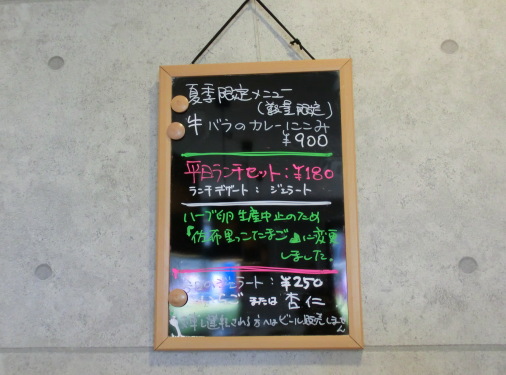 夏季限定メニュー
(数量限定)
牛バラのカレーにこみ
¥900
平日ランチセット：¥180
ランチデザート：ジェラート
ハーブ卵生産中止のため
『佐布里っこたまご』に変更
しました。
ジェラート：¥250
ご または 杏仁
される方へはビール販売しません